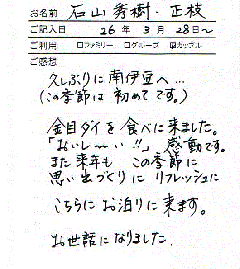 お名前 石山秀樹・正枝
ご記入日 26年 3月 28日〜
ご利用 □ファミリー □グループ ☑カップル
ご感想
久しぶりに南伊豆へ…
(この季節は 初めてです。)
金目ダイを食べに来ました。
「おいし〜い!!」感動です。
また来年も この季節に
思い出づくりに リフレッシュに
こちらに お泊りに来ます。
お世話になりました。